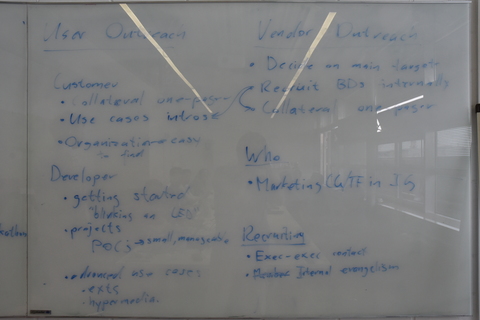 User Outreach
Customer
• Collateral one-pager
• Use cases
• Organization
to find
Developer
• getting started
"blinking an LED"
• projects
POC; → small, manageable
• advanced use cases
• exts
• hypermedia
Vendor Outreach
• Decide on main target
Recruit BDs internally
Collateral one pager
Who
• Marketing CG/TF in IG
Recruiting
• Exec-exec contact
• Member Internal evangelism